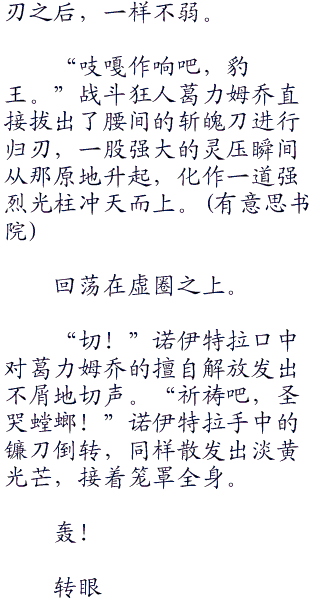 刃之后，一样不弱。
“吱嘎作响吧，豹
王。”战斗狂人葛力姆乔直
接拔出了腰间的斩魄刀进行
归刃，一股强大的灵压瞬间
从那原地升起，化作一道强
烈光柱冲天而上。(有意思书
院)
回荡在虚圈之上。
“切！”诺伊特拉口中
对葛力姆乔的擅自解放发出
不屑地切声。“祈祷吧，圣
哭螳螂！”诺伊特拉手中的
镰刀倒转，同样散发出淡黄
光芒，接着笼罩全身。
轰！
转眼